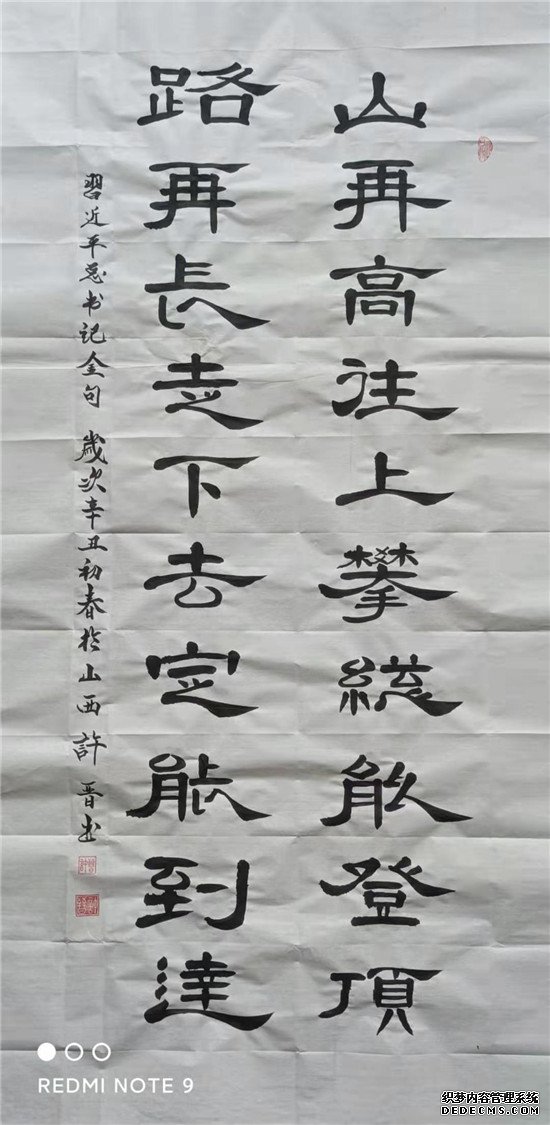 山再高往上攀總能登頂
路再長走下去定能到達
習近平总书记金句 歲次辛丑初春於山西 許晋书
REDMI NOTE 9
织梦内容管理系统
DEDECMS.COM